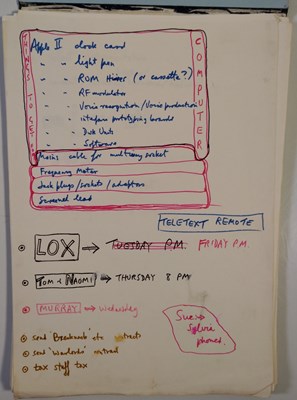 THINGS TO GET:
COMPUTER
Apple II clock card
" " light pen
" " ROM (or cassette?)
" " RF modulator
" " Voice recognition / Voice production
" " interface prototyping boards
" " Disk Units
" " Software
Mains cable for multiway socket
Frequency Meter
Jack plugs/sockets/adaptors
lead
TELETEXT REMOTE
LOX → TUESDAY P.M. FRIDAY P.M.
TOM & NAOMI → THURSDAY 8 PM
MURRAY → Wednesday
Sue →
Sylvia
phoned.
send etc
send
tax staff tax